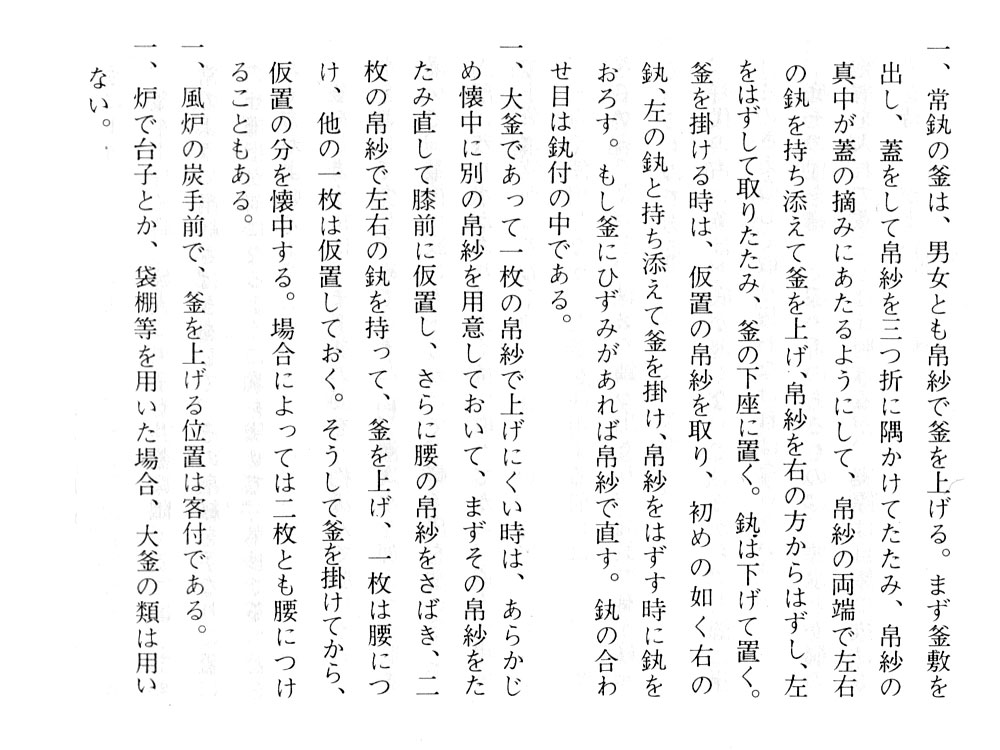 一、常釻の釜は、男女とも帛紗で釜を上げる。まず釜敷を
出し、蓋をして帛紗を三つ折に隅かけてたたみ、帛紗の
真中が蓋の摘みにあたるようにして、帛紗の両端で左右
の釻を持ち添えて釜を上げ、帛紗を右の方からはずし、左
をはずして取りたたみ、釜の下座に置く。釻は下げて置く。
釜を掛ける時は、仮置の帛紗を取り、初めの如く右の
釻、左の釻と持ち添えて釜を掛け、帛紗をはずす時に釻を
おろす。もし釜にひずみがあれば帛紗で直す。釻の合わ
せ目は釻付の中である。
一、大釜であって一枚の帛紗で上げにくい時は、あらかじ
め懐中に別の帛紗を用意しておいて、まずその帛紗をた
たみ直して膝前に仮置し、さらに腰の帛紗をさばき、二
枚の帛紗で左右の釻を持って、釜を上げ、一枚は腰につ
け、他の一枚は仮置しておく。そうして釜を掛けてから、
仮置の分を懐中する。場合によっては二枚とも腰につけ
ることもある。
一、風炉の炭手前で、釜を上げる位置は客付である。
一、炉で台子とか、袋棚等を用いた場合、大釜の類は用い
ない。